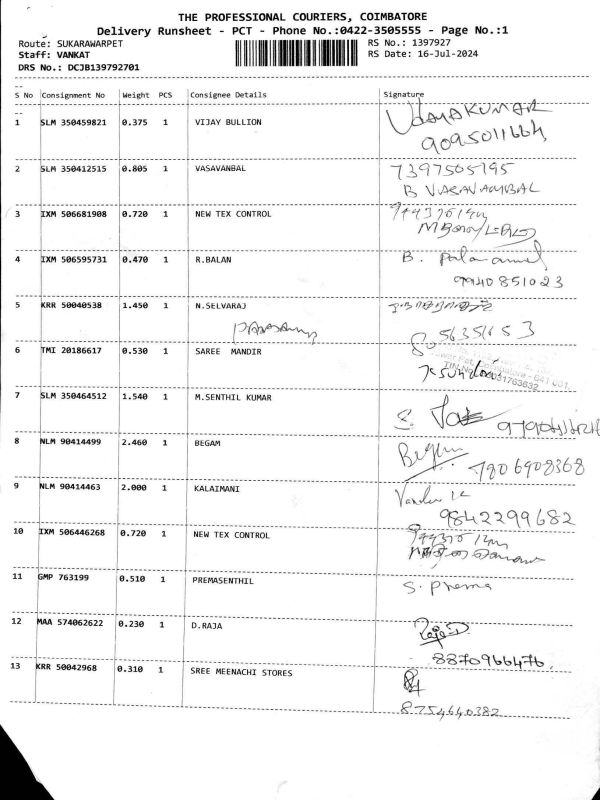 THE PROFESSIONAL COURIERS, COIMBATORE
Delivery Runsheet - PCT - Phone No.:0422-3505555 - Page No.:1
Route: SUKARAWARPET
RS No.: 1397927
Staff: VANKAT
RS Date: 16-Jul-2024
DRS No.: DCJB139792701
S No Consignment No Weight PCS Consignee Details Signature
1 SLM 350459821 0.375 1 VIJAY BULLION UDAYAKUMAR
9095011664
2 SLM 350412515 0.805 1 VASAVANBAL 7397505195
B VASAVAMBAL
3 IXM 506681908 0.720 1 NEW TEX CONTROL
4 IXM 506595731 0.470 1 R.BALAN B.
9940851023
5 KRR 50040538 1.450 1 N.SELVARAJ
6 TMI 20186617 0.530 1 SAREE MANDIR
7 SLM 350464512 1.540 1 M.SENTHIL KUMAR S.
8 NLM 90414499 2.460 1 BEGAM Begum
7806908368
9 NLM 90414463 2.000 1 KALAIMANI
9842299682
10 IXM 506446268 0.720 1 NEW TEX CONTROL
11 GMP 763199 0.510 1 PREMASENTHIL S. Prema
12 MAA 574062622 0.230 1 D.RAJA Raja.D
8870966476
13 KRR 50042968 0.310 1 SREE MEENACHI STORES
8754640382